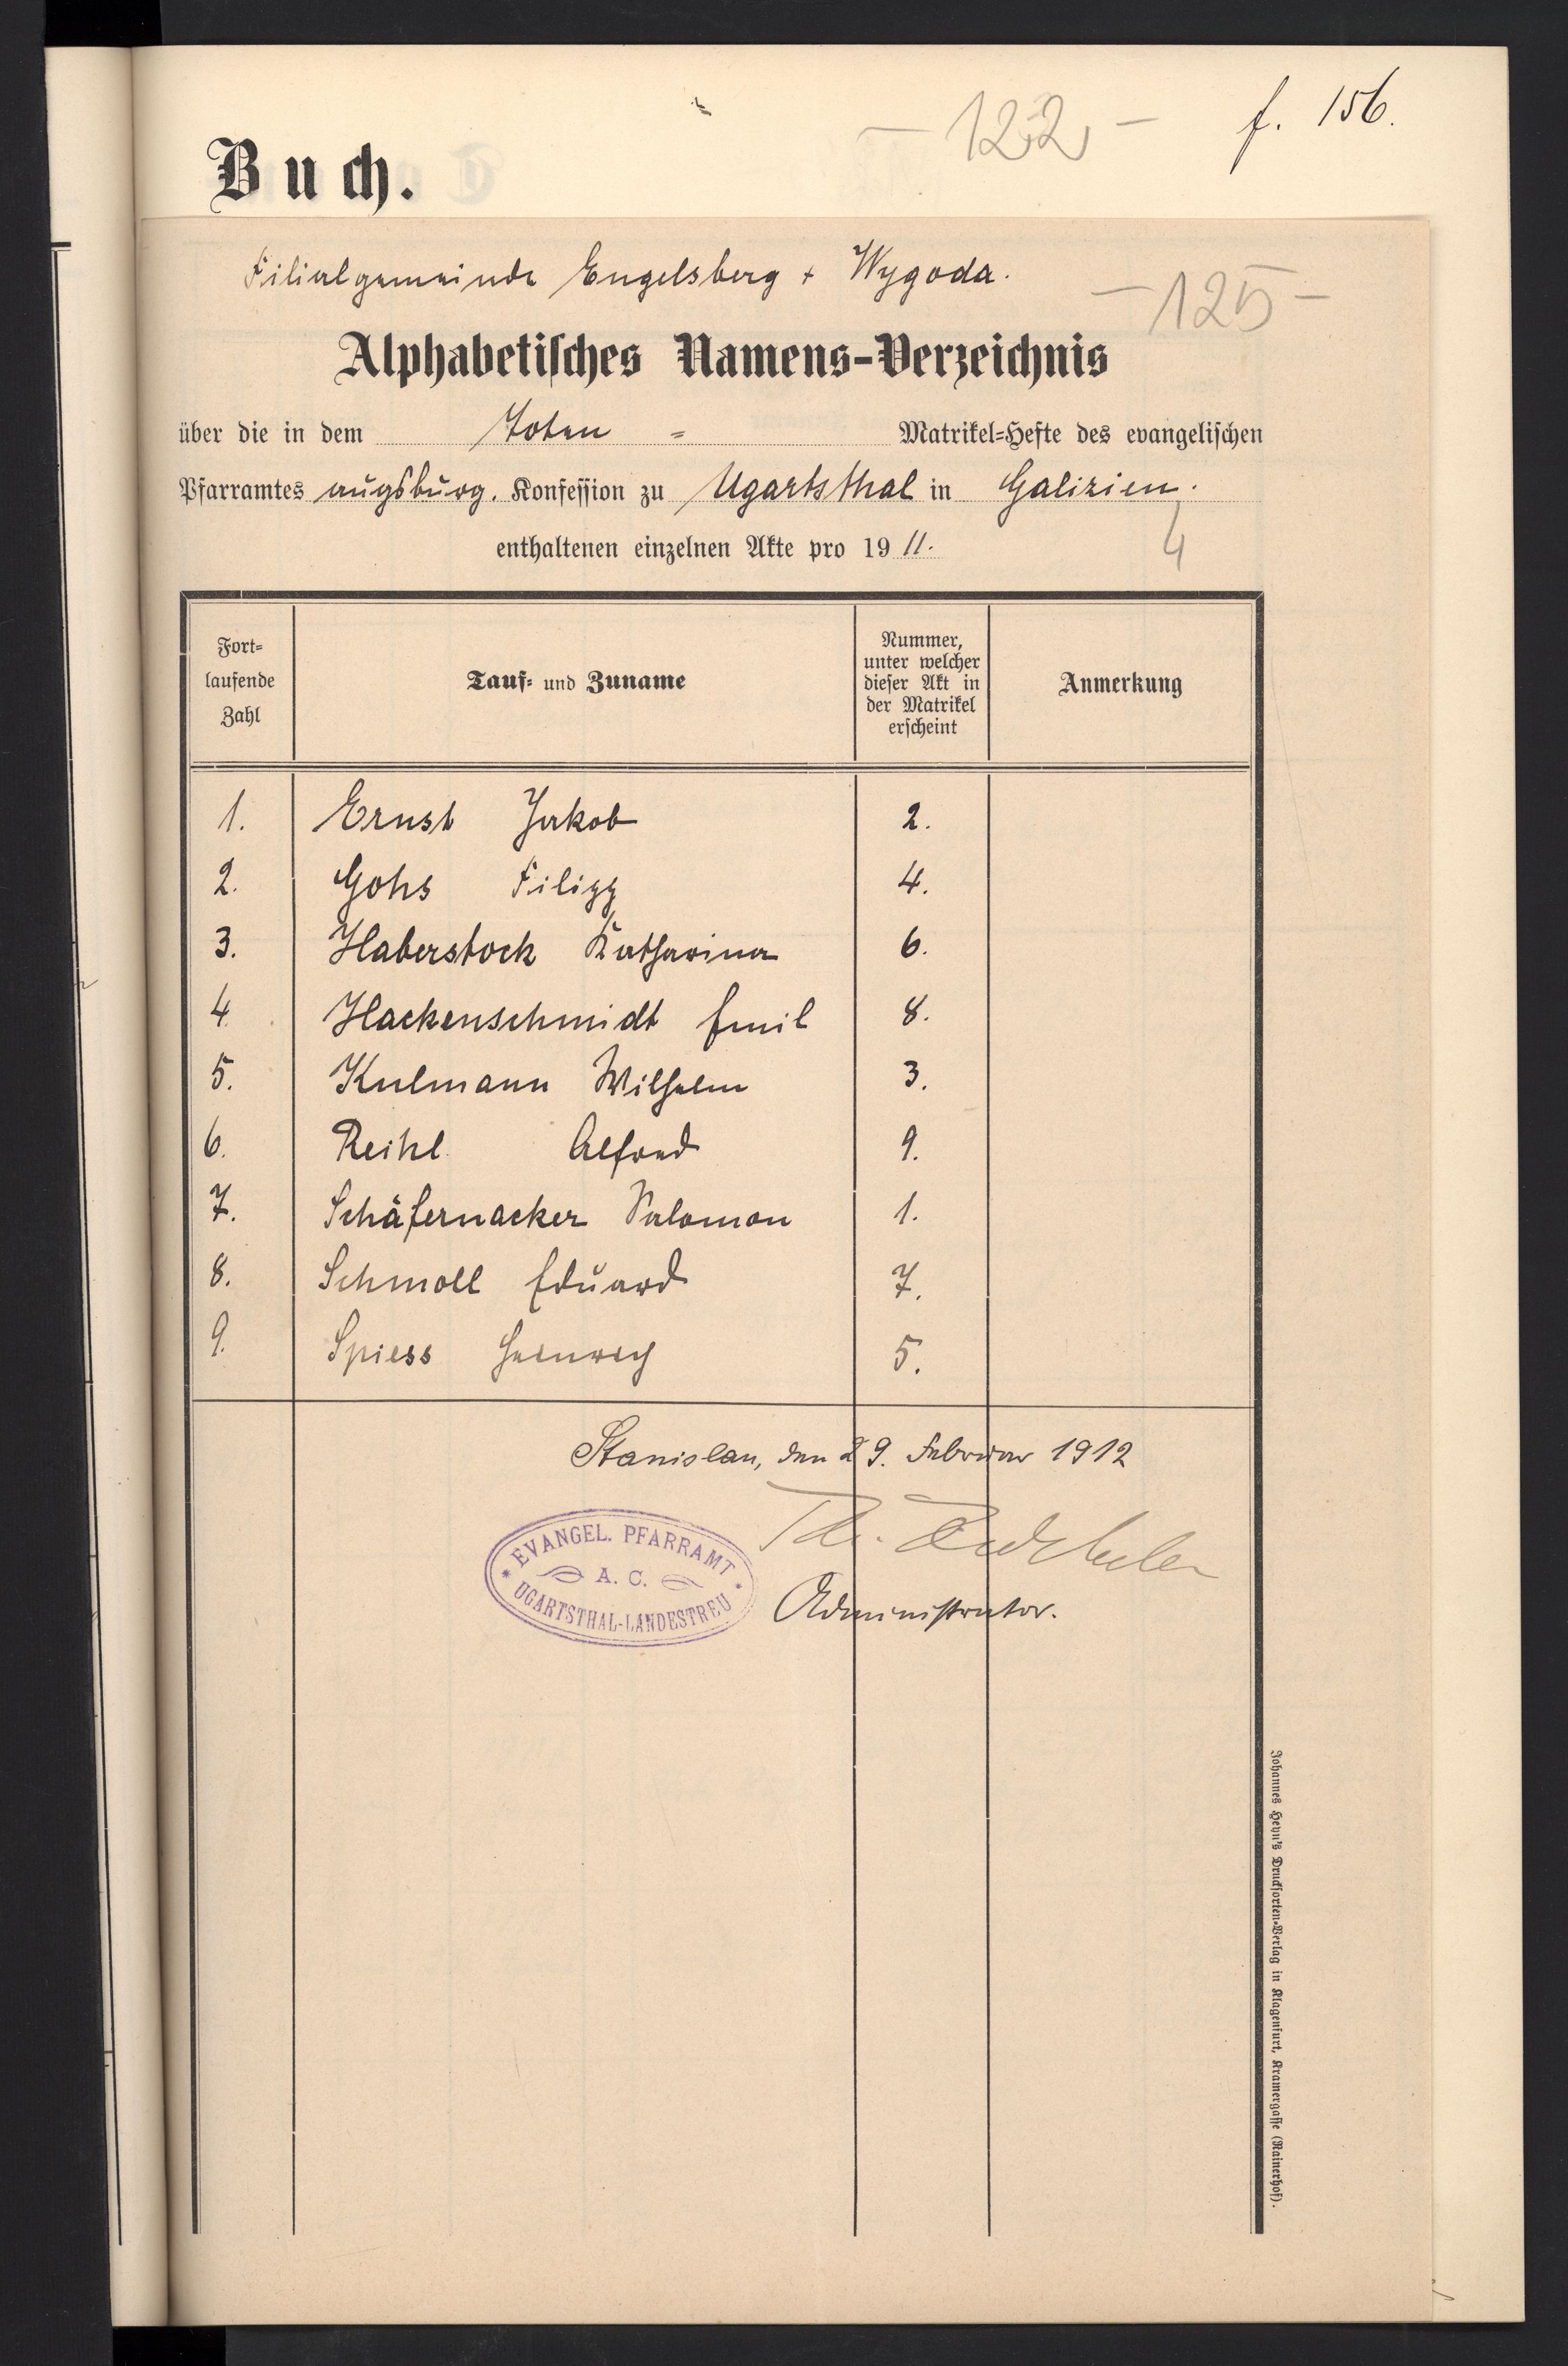 f. 156.
- 122 -
Buch.
Filialgemeinde Engelsberg + Wygoda.
- 125 -
Alphabetisches Namens-Verzeichnis
über die in dem Toten = Matrikel=Hefte des evangelischen
Pfarramtes augsburg. Konfession zu Ugartsthal in Galizien.
enthaltenen einzelnen Akte pro 1911.
4
Fort=
laufende
Zahl
Tauf= und Zuname
Nummer,
unter welcher
dieser Akt in
der Matrikel
erscheint
Anmerkung
1. Ernst Jakob 2.
2. Gohs Filipp 4.
3. Haberstock Katharina 6.
4. Hackenschmidt Emil 8.
5. Kulmann Wilhelm 3.
6. Reihl Alfred 9.
7. Schäfernacker Salomon 1.
8. Schmoll Eduard 7.
9. Spiess 5.
Stanislau, den 29. Februar 1912
Administrator.
EVANGEL. PFARRAMT
A. C.
UGARTSTHAL-LANDESTREU
Johannes Heyn's Drucksorten=Verlag in Klagenfurt, Kramergasse (Rainerhof).